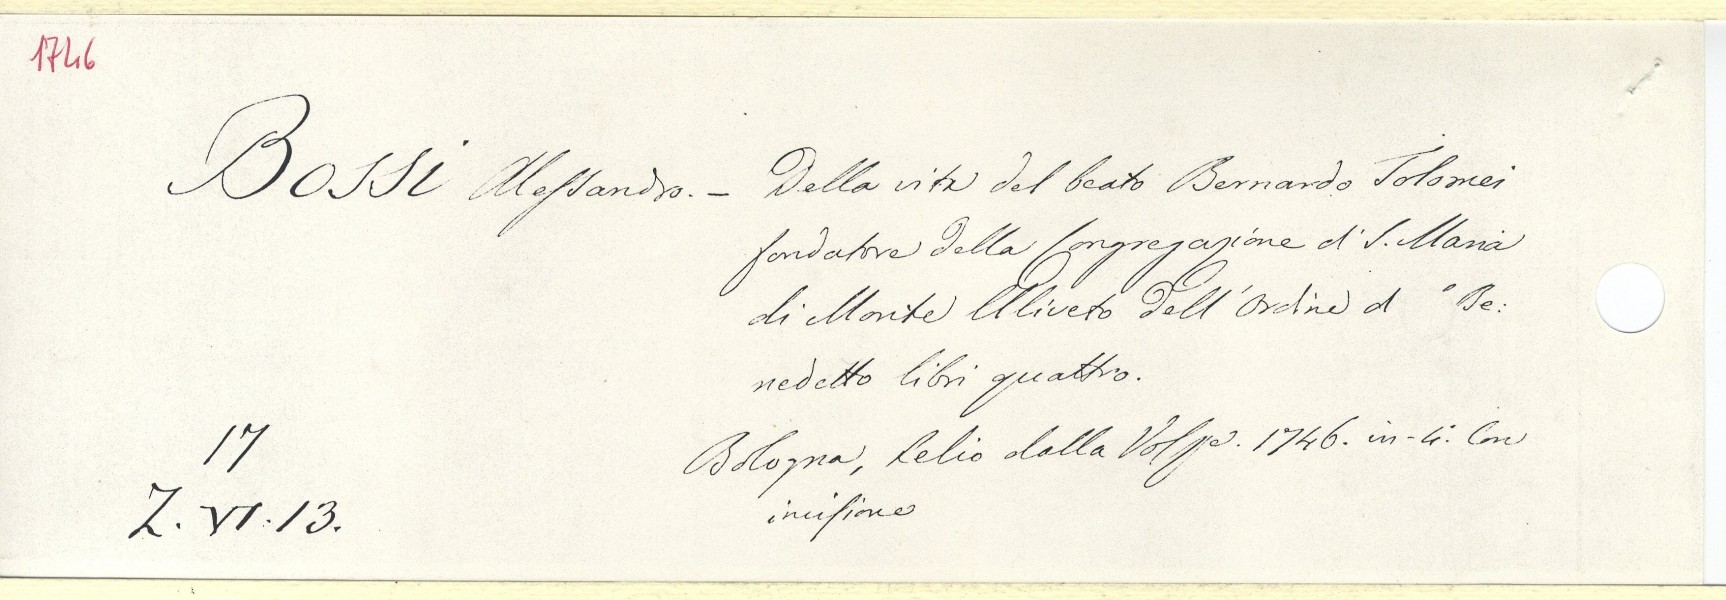 1746
Bossi Alessandro. – Della vita del beato Bernardo Tolomei
fondatore della Congregazione di S. Maria
di Monte Uliveto dell'Ordine d Be:
nedetto libri quattro.
17
Bologna, Lelio dalla Volpe. 1746. in-4. Con
Z. VI. 13.
incisione